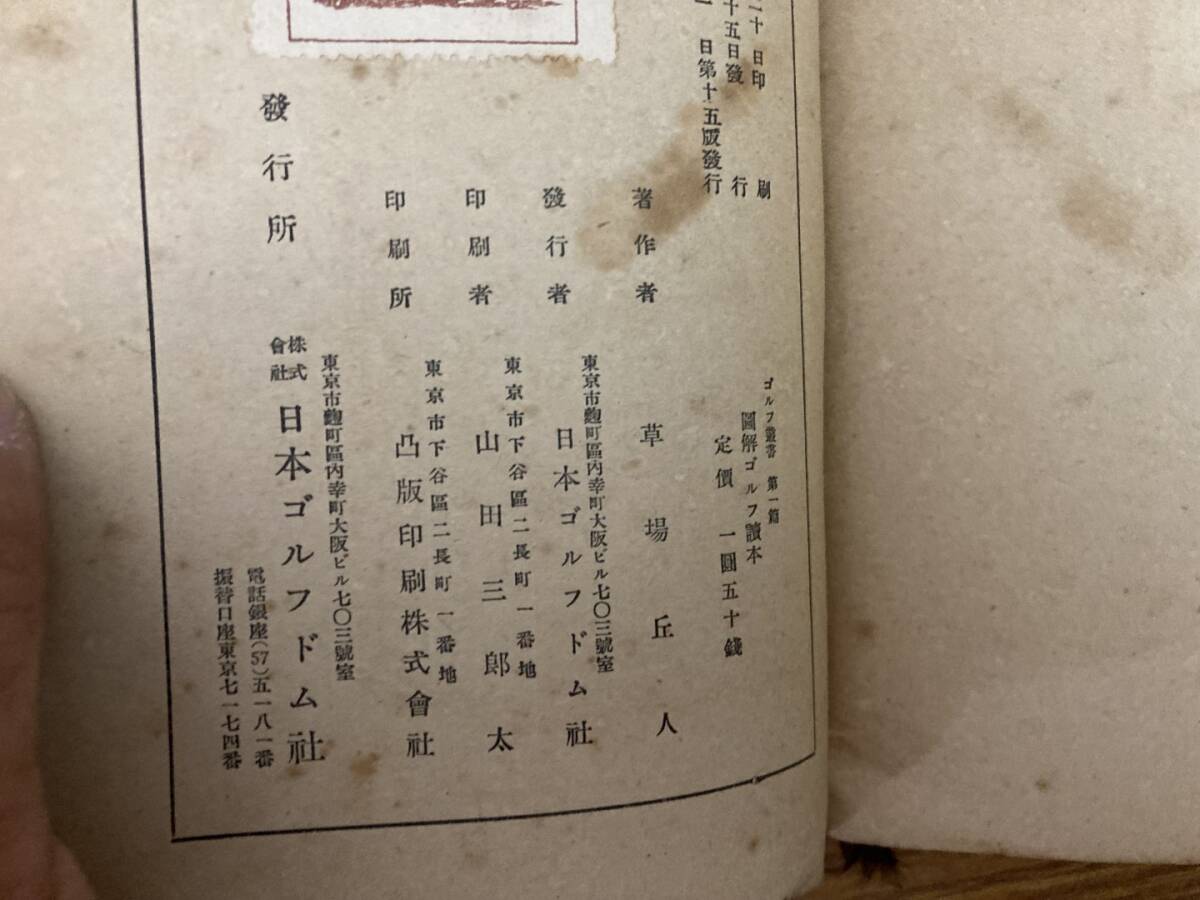 二十日印刷
十五日發行
一日第十五版發行
ゴルフ叢書 第一篇
圖解ゴルフ讀本
定價 一圓五十錢
著作者 草場丘人
東京市麴町區內幸町大阪ビル七〇三號室
發行者 日本ゴルフドム社
東京市下谷區二長町一番地
印刷者 山田三郞太
東京市下谷區二長町一番地
印刷所 凸版印刷株式會社
東京市麴町區內幸町大阪ビル七〇三號室
發行所 株式會社 日本ゴルフドム社
電話銀座(57)五一八一番
振替口座東京七一七四番